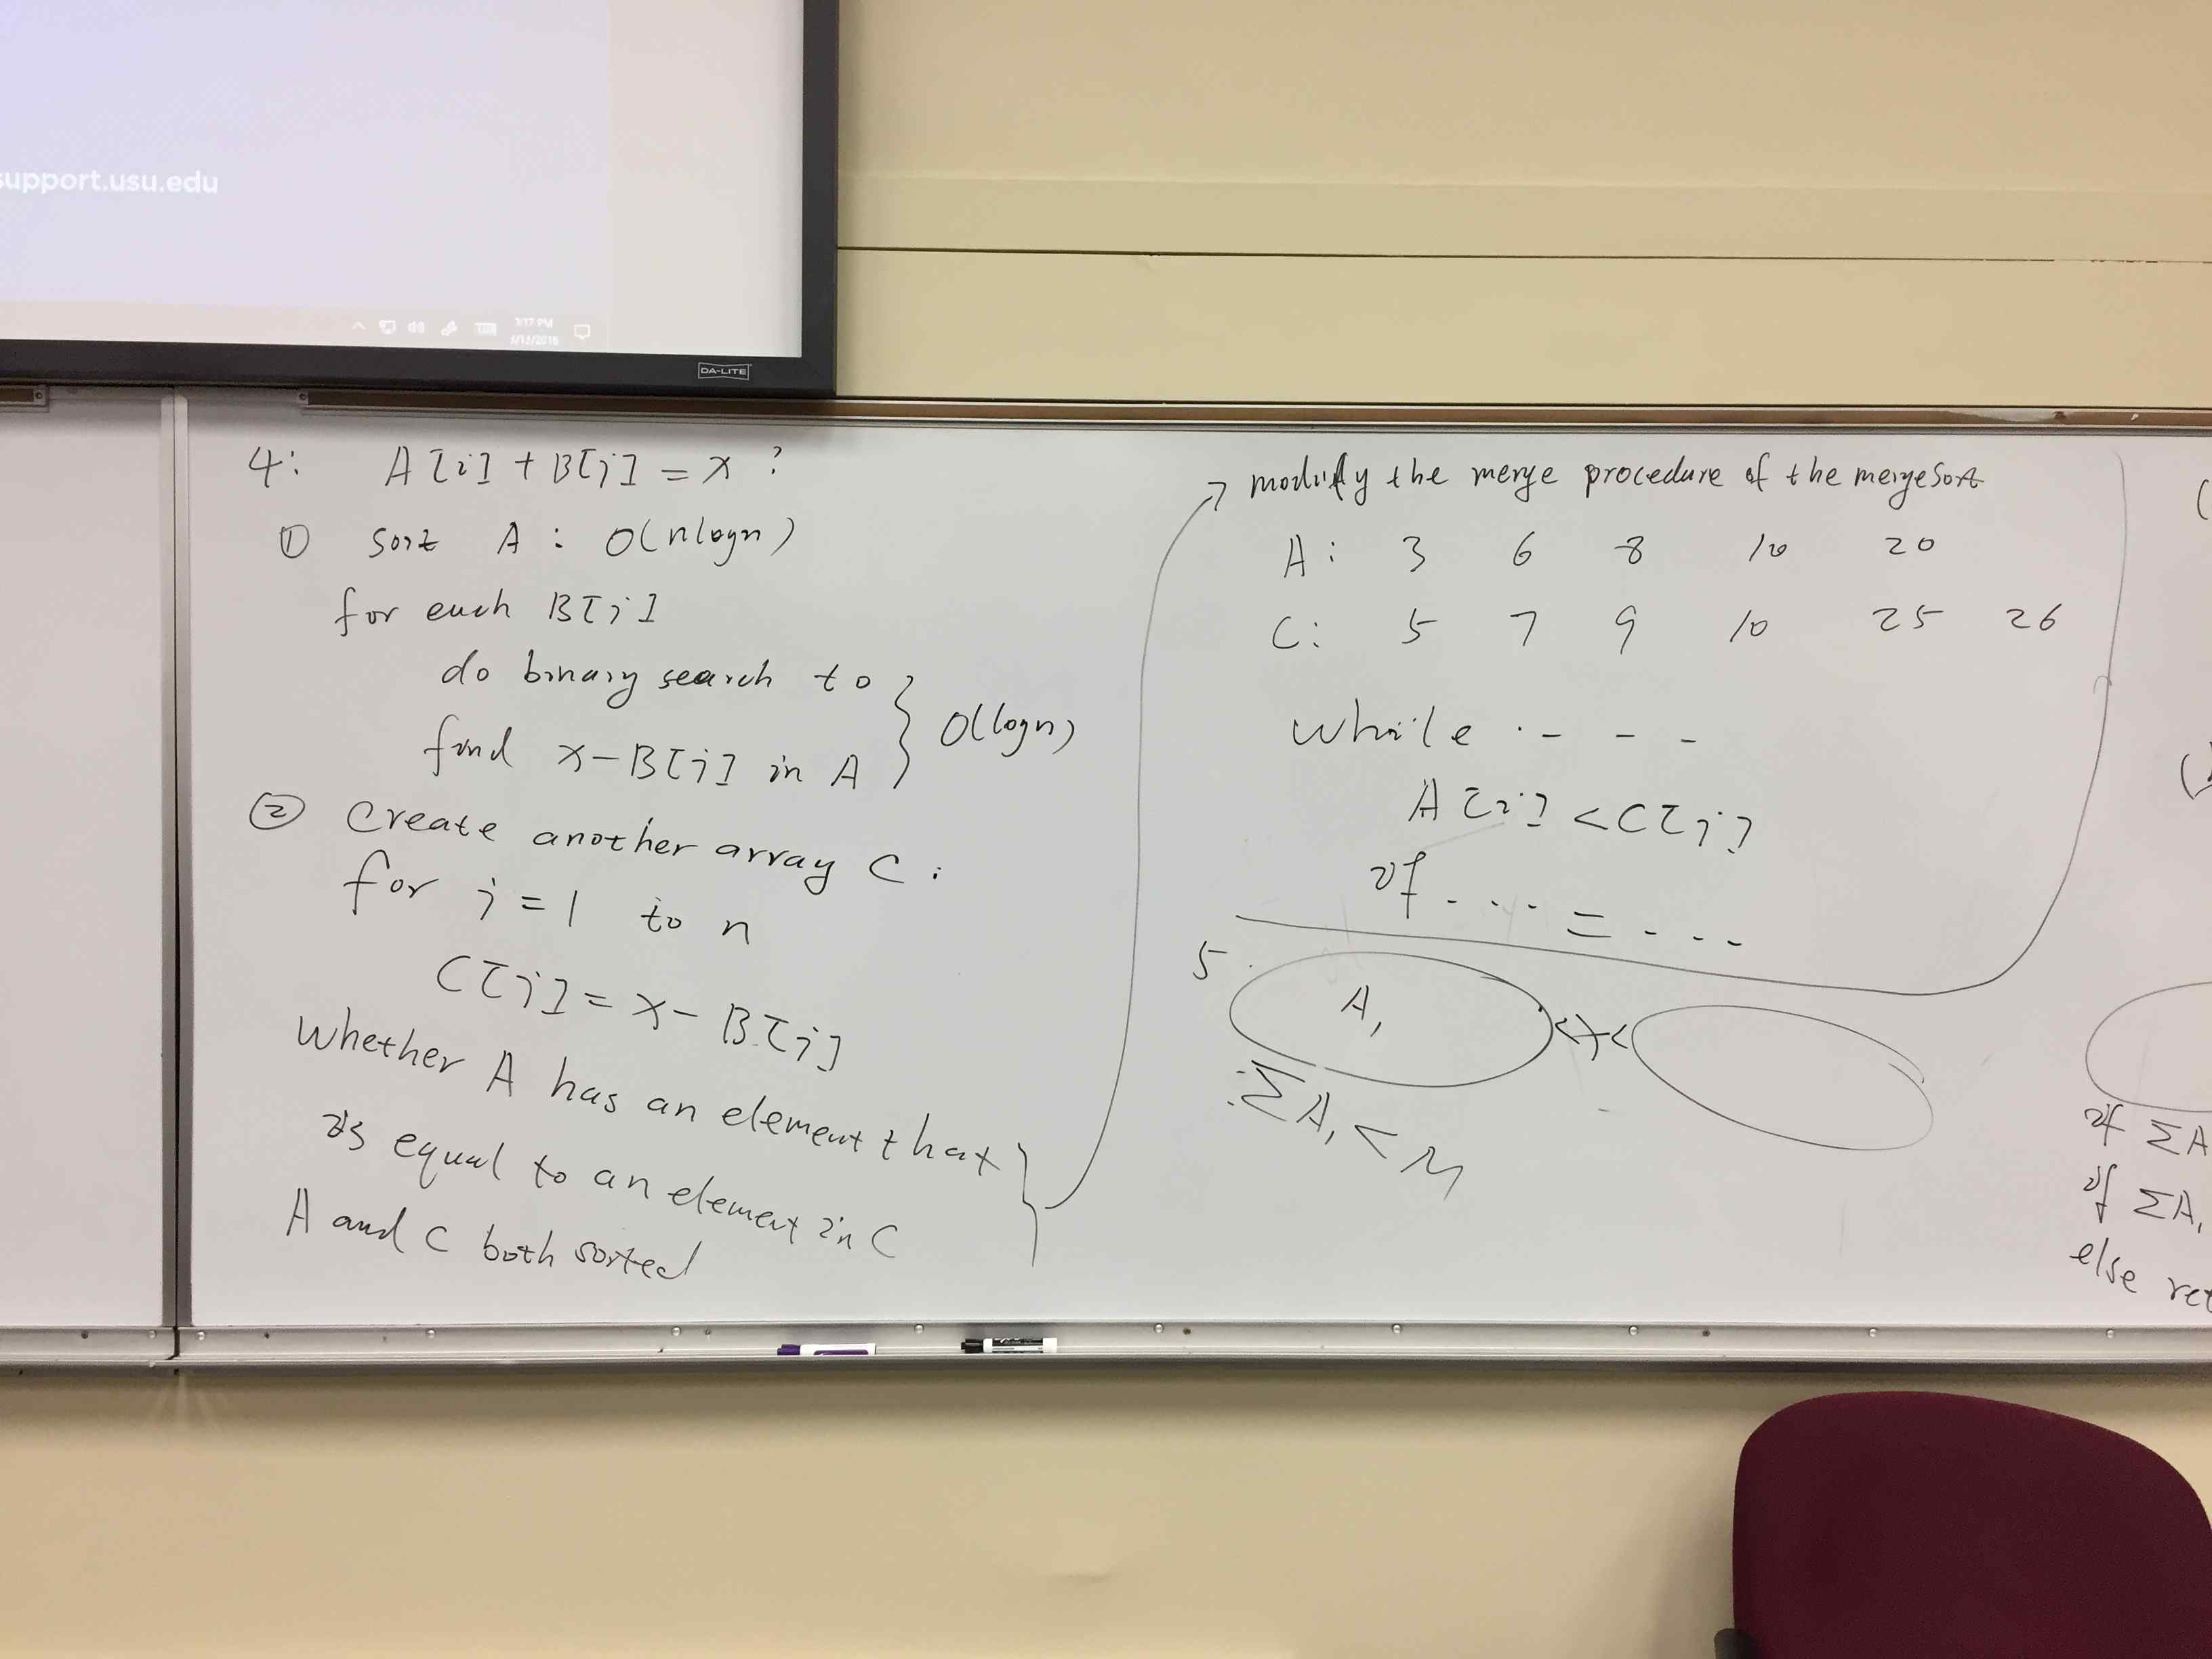 support.usu.edu
3:17 PM
DA-LITE
4: A[i] + B[j] = x ?
① sort A : O(nlogn)
for each B[j]
do binary search to
find x-B[j] in A } O(logn)
② Create another array C :
for j = 1 to n
C[j] = x - B[j]
Whether A has an element that
is equal to an element in C
A and C both sorted
modify the merge procedure of the mergesort
A: 3 6 8 10 20
C: 5 7 9 10 25 26
while . - - -
A[i] < C[j]
if - - - = - - -
5.
A₁
ΣA₁ < M
if ΣA
if ΣA₁
else ret